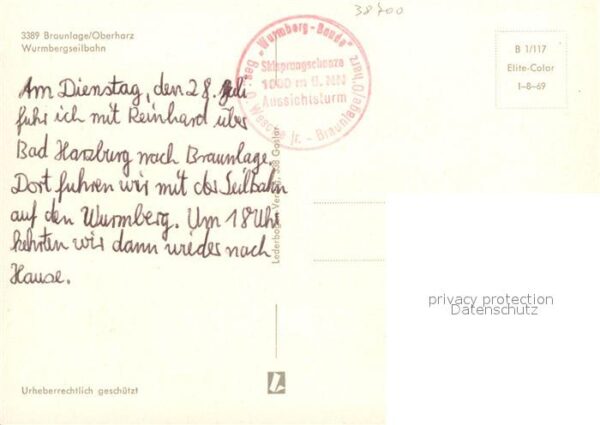 38700
3389 Braunlage/Oberharz
Wurmbergseilbahn
"Wurmberg-Baude"
Skisprungschanze
1000 m ü. NN
Aussichtsturm
Bes.: O. Wesche jr. - Braunlage/Oharz
B 1/117
Elite-Color
1-8-69
Am Dienstag, den 28. Juli
fuhr ich mit Reinhard über
Bad Harzburg nach Braunlage.
Dort fuhren wir mit der Seilbahn
auf den Wurmberg. Um 18 Uhr
kehrten wir dann wieder nach
Hause.
Lederbogen Verlag, 338 Goslar
privacy protection
Datenschutz
Urheberrechtlich geschützt